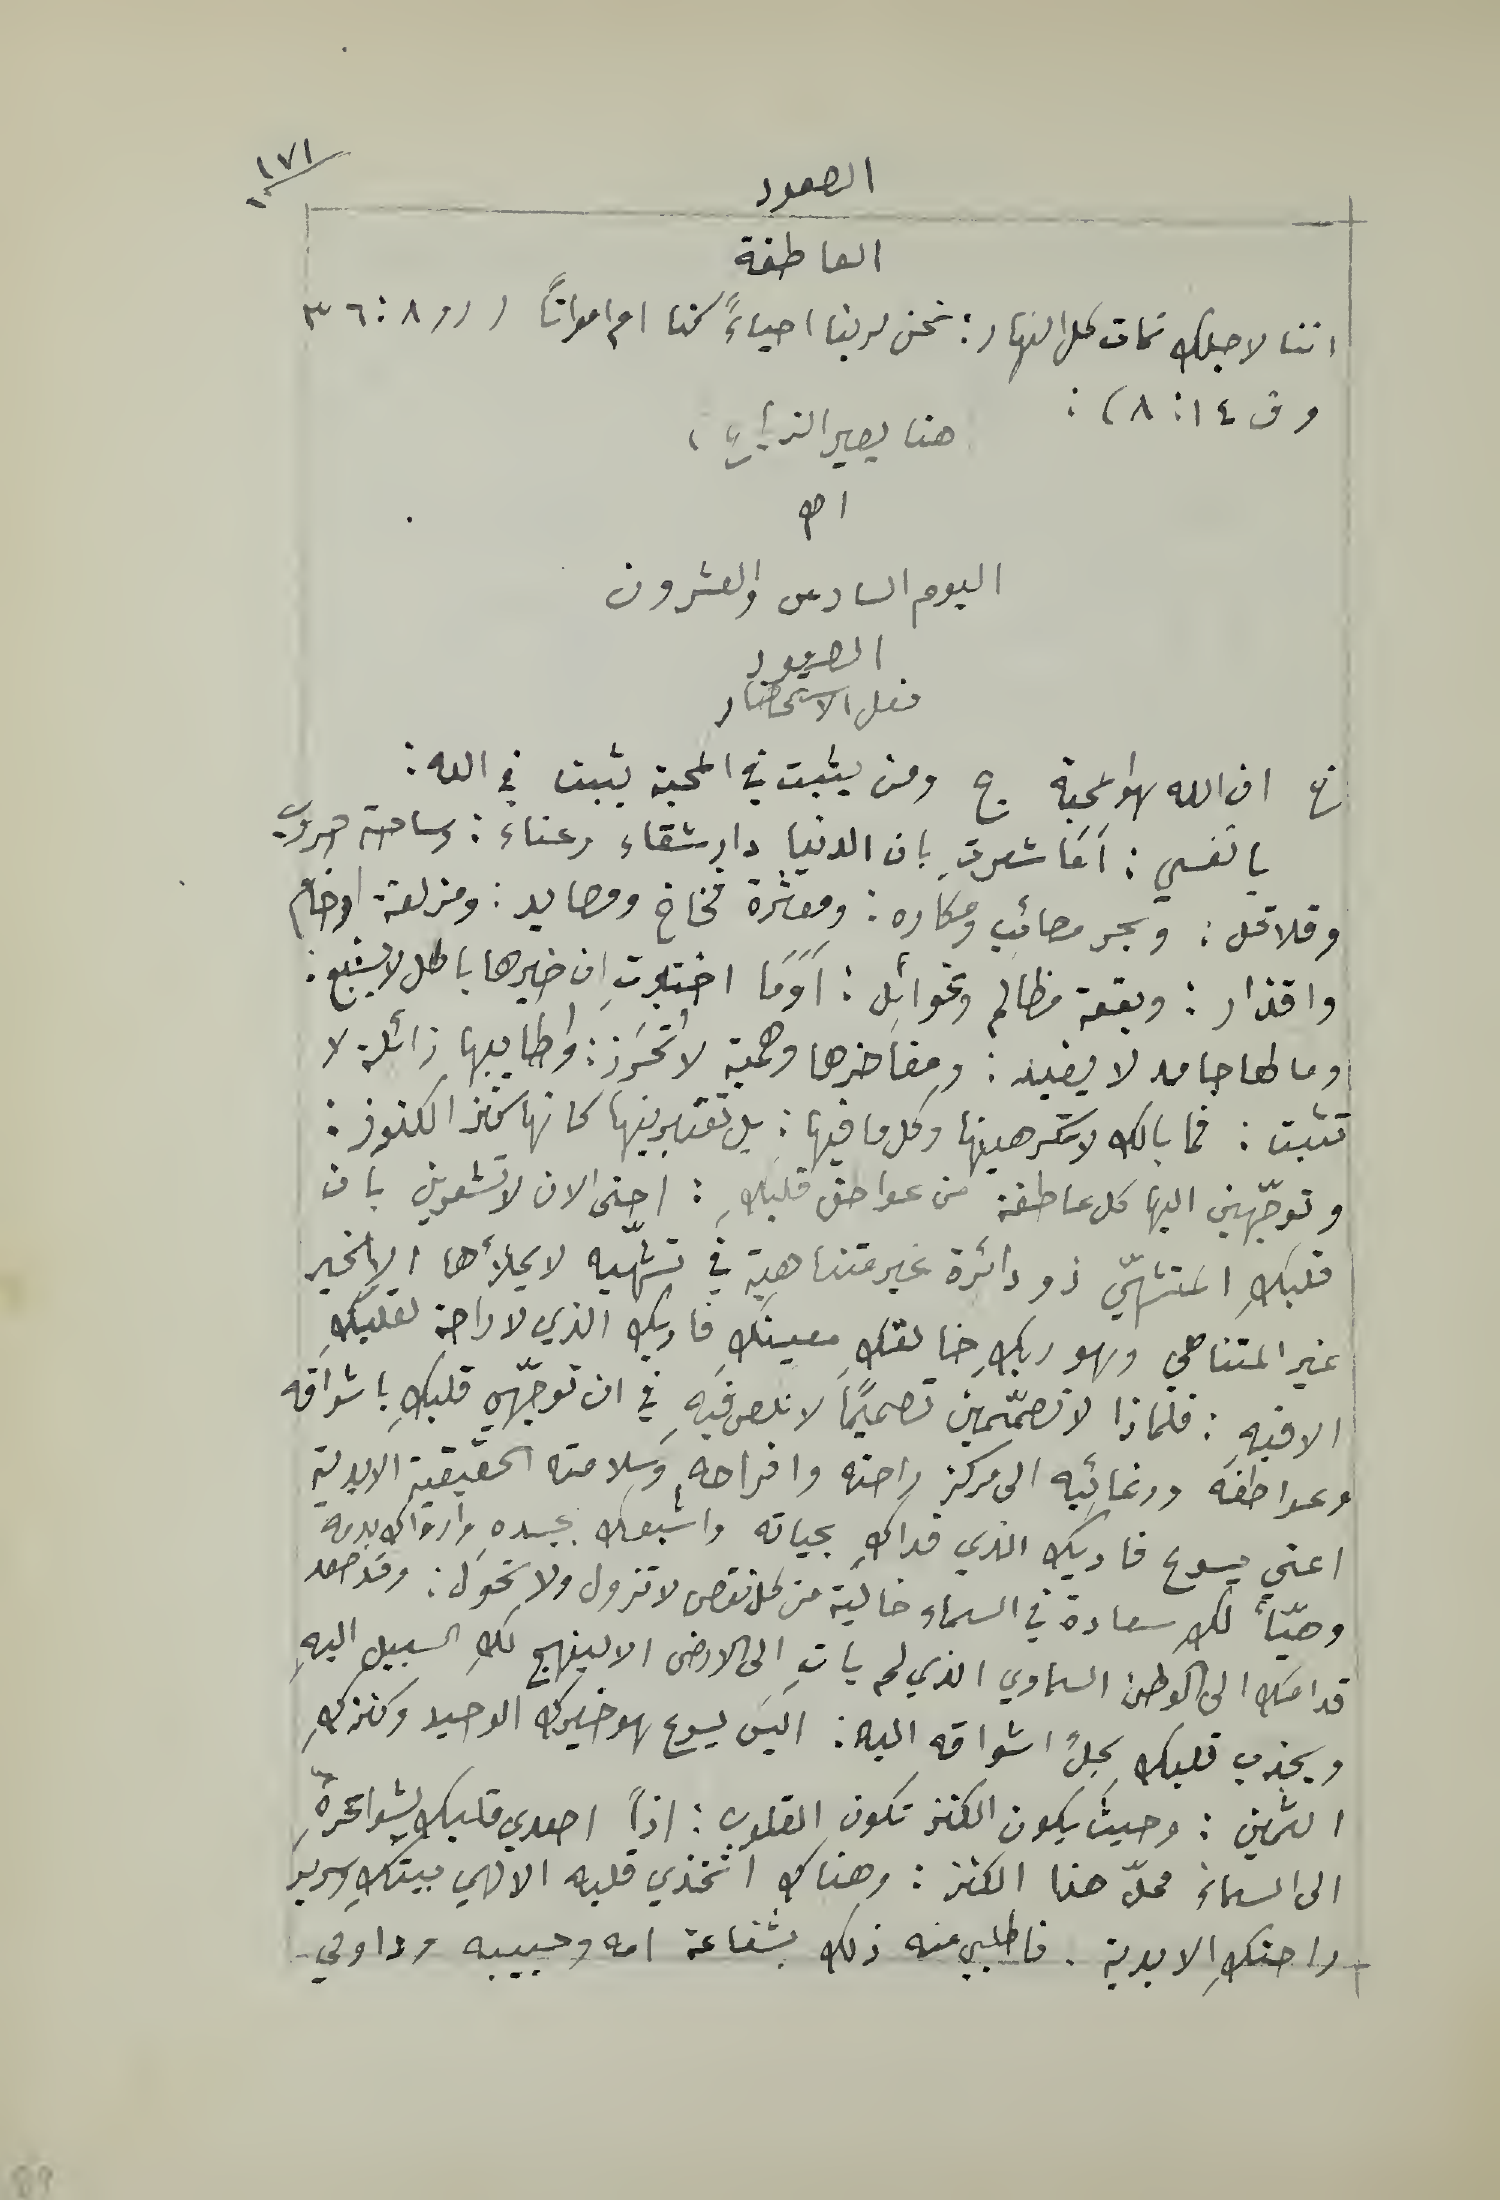 ١٧١
١٠
الصعود
العاطفة
اننا لاجلك نمات كل النهار: نحن لربنا احياءً كنا ام امواتاً (رو ٨: ٣٦
و ق ١٤: ٨):
هنا يصير
اليوم السادس والعشرون
الصعود
فعل الاستحضار
ان الله هو المحبة ج ومن يثبت في المحبة يثبت في الله:
يا نفسي: اَمَا شعرتِ بان الدنيا دار شقاء وعناء: وساحة حروب
وقلاقل: وبحر مصائب ومكاره: ومعثرة فخاخ ومصايد: ومزلعة اوخام
واقذار: وبقعة مظالم وغوائل: اَوَمَا اختبرتِ ان خيرها باطل لا يشبع:
وما لها جامد لا يفيد: ومفاخرها وهمية لا تُحرَز: واطايبها زائلة لا
تثبت: فما بالك لا تكرهينها وكل ما فيها: بل تعتبرينها كانها كنز الكنوز:
وتوجّهين اليها كل عاطفة من عواطف قلبكِ: احتى الان لا تشعرين بان
قلبكِ المتشهّي ذو دائرة غير متناهية في تشهّيه لا يملأها الا الخير
غير المتناهي وهو ربكِ خالقكِ معينكِ فاديك الذي لا راحة لقلبكِ
الا فيهِ: فلماذا لا تصمّمين تصميمًا لا نقص فيهِ في ان توجّهي قلبكِ باشواقه
وعواطفه ورغائبه الى مركز راحته وافراحه وسلامته الحقيقية الابدية
اعني يسوع فاديك الذي فداكِ بحياته واشبعك بجسده وارواك بدمه
وهيّأ لكِ سعادة في السماء خالية من كل نقص لا تزول ولا تحول: وقد صعد
قدامك الى الوطن السماوي الذي لم ياتِ الى الارض الا لينهج لكِ السبيل اليهِ
ويجذب قلبك بجلّ اشواقه اليه: اليس يسوع هو خيرك الوحيد وكنزكِ
الثمين: وحيث يكون الكنز تكون القلوب: اذاً اصعدي قلبك
الى السماء محلّ هذا الكنز: وهناك اتّخذي قلبه الالهي بيتكِ وسرير
راحتكِ الابدية. فاطلبي منه ذلك بشفاعة امه وحبيبه وداومي
89